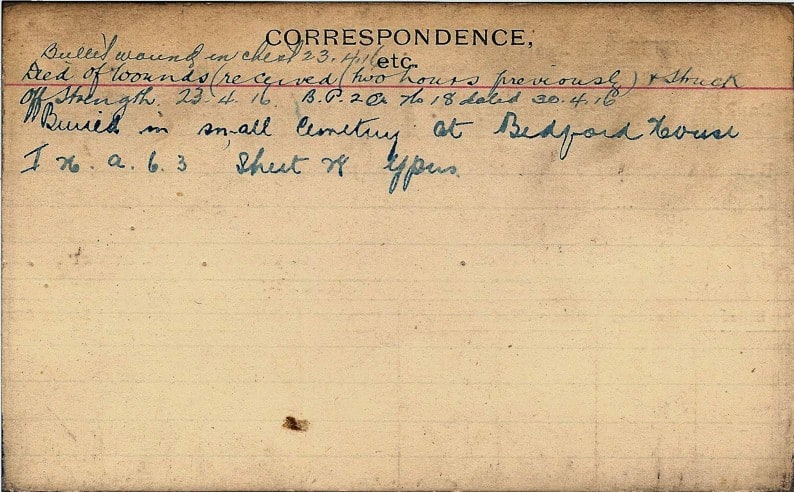 CORRESPONDENCE,
etc.
Bullet wound in chest 23.4.16
Died of Wounds (received (two hours previously) & Struck
off Strength. 23.4.16. B.P. 2 No 18 dated 30.4.16
Buried in small Cemetery at Bedford House
I a. 6. 3 Sheet Ypres